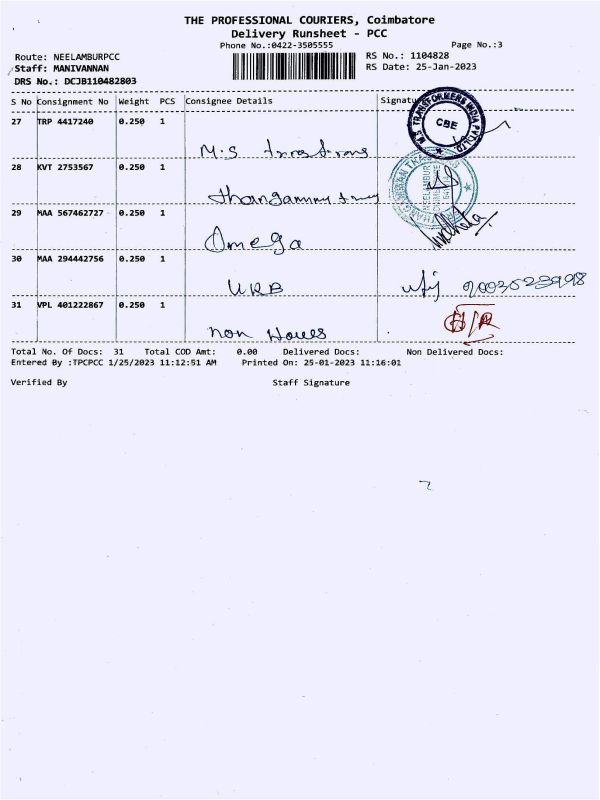 THE PROFESSIONAL COURIERS, Coimbatore
Delivery Runsheet - PCC
Phone No.:0422-3505555 Page No.:3
Route: NEELAMBURPCC RS No.: 1104828
Staff: MANIVANNAN RS Date: 25-Jan-2023
DRS No.: DCJB110482803
S No Consignment No Weight PCS Consignee Details Signatu
M.S TRANSFORMERS INDIA PVT LTD
CBE
27 TRP 4417240 0.250 1
M.S
28 KVT 2753567 0.250 1
NEELAMBUR
29 MAA 567462727 0.250 1
Omega
30 MAA 294442756 0.250 1
URB
31 VPL 401222867 0.250 1
Non
Total No. Of Docs: 31 Total COD Amt: 0.00 Delivered Docs: Non Delivered Docs:
Entered By :TPCPCC 1/25/2023 11:12:51 AM Printed On: 25-01-2023 11:16:01
Verified By Staff Signature